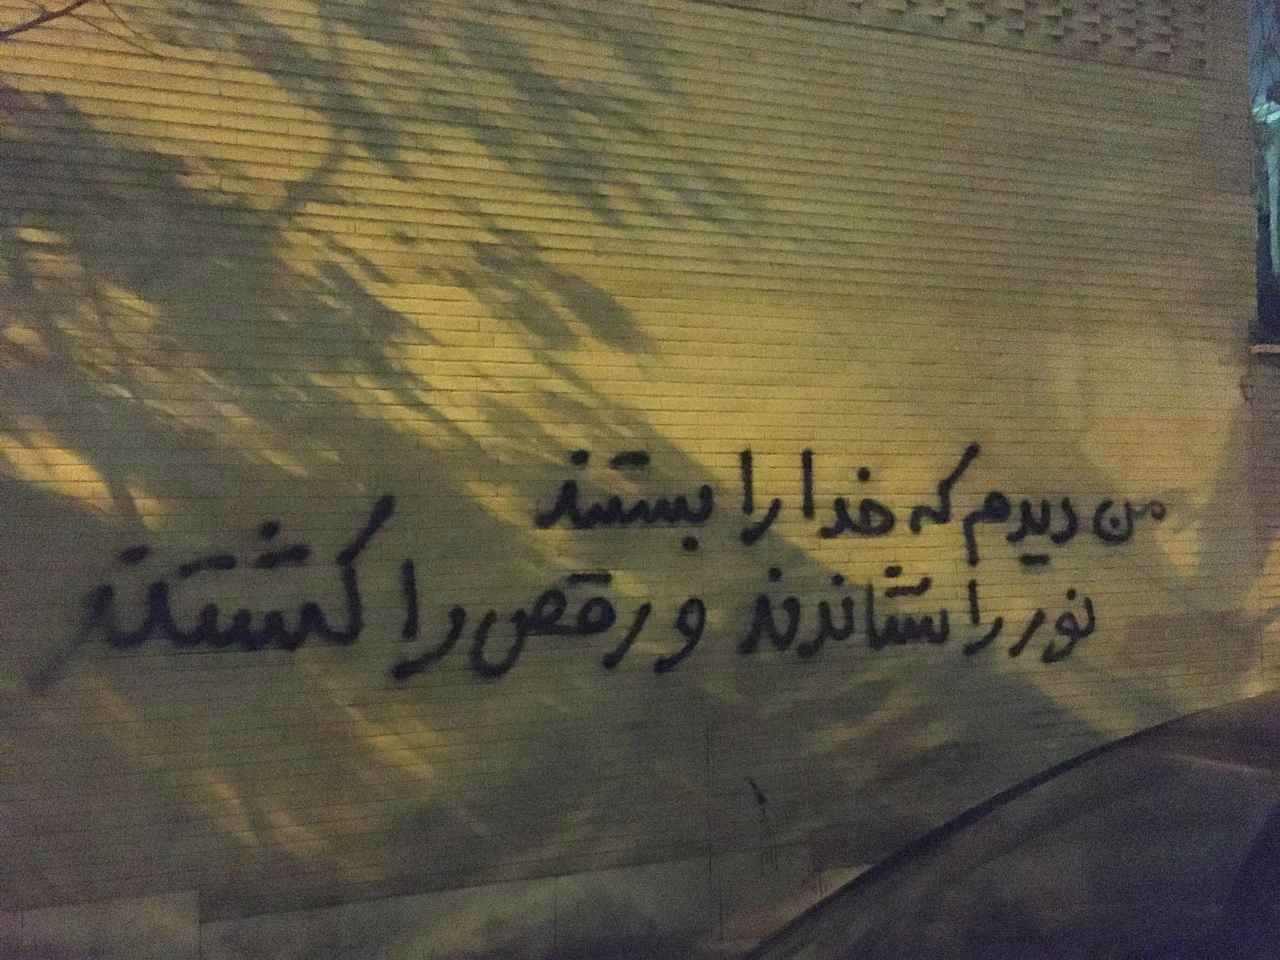 من دیدم که خدا را بستند
نور را ستاندند و رقص را کشتند